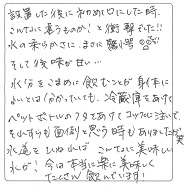 設置した後に初めて口にした時、
こんなに違うものか!と衝撃でした!!
水の柔らかさに、まさに驚愕
そして後味が甘い…
水分をこまめに飲むことが身体に
よいとは分かっていても、冷蔵庫をあけて
ペットボトルのフタをあけてコップに注いで、
それすらも面倒と思う時もありましたが笑
水道をひねれば、こんなに美味しい
水が!今は本当に楽に美味しく
たくさん飲んでいます!